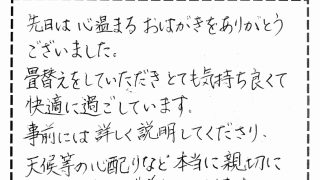 先日は心温まるおはがきをありがとう
ございました。
畳替えをしていただきとても気持ち良くて
快適に過ごしています。
事前には詳しく説明してくださり、
天候等の心配りなど本当に親切に